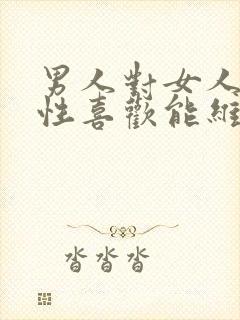 男人對女人
性喜歡能維
沓沓沓